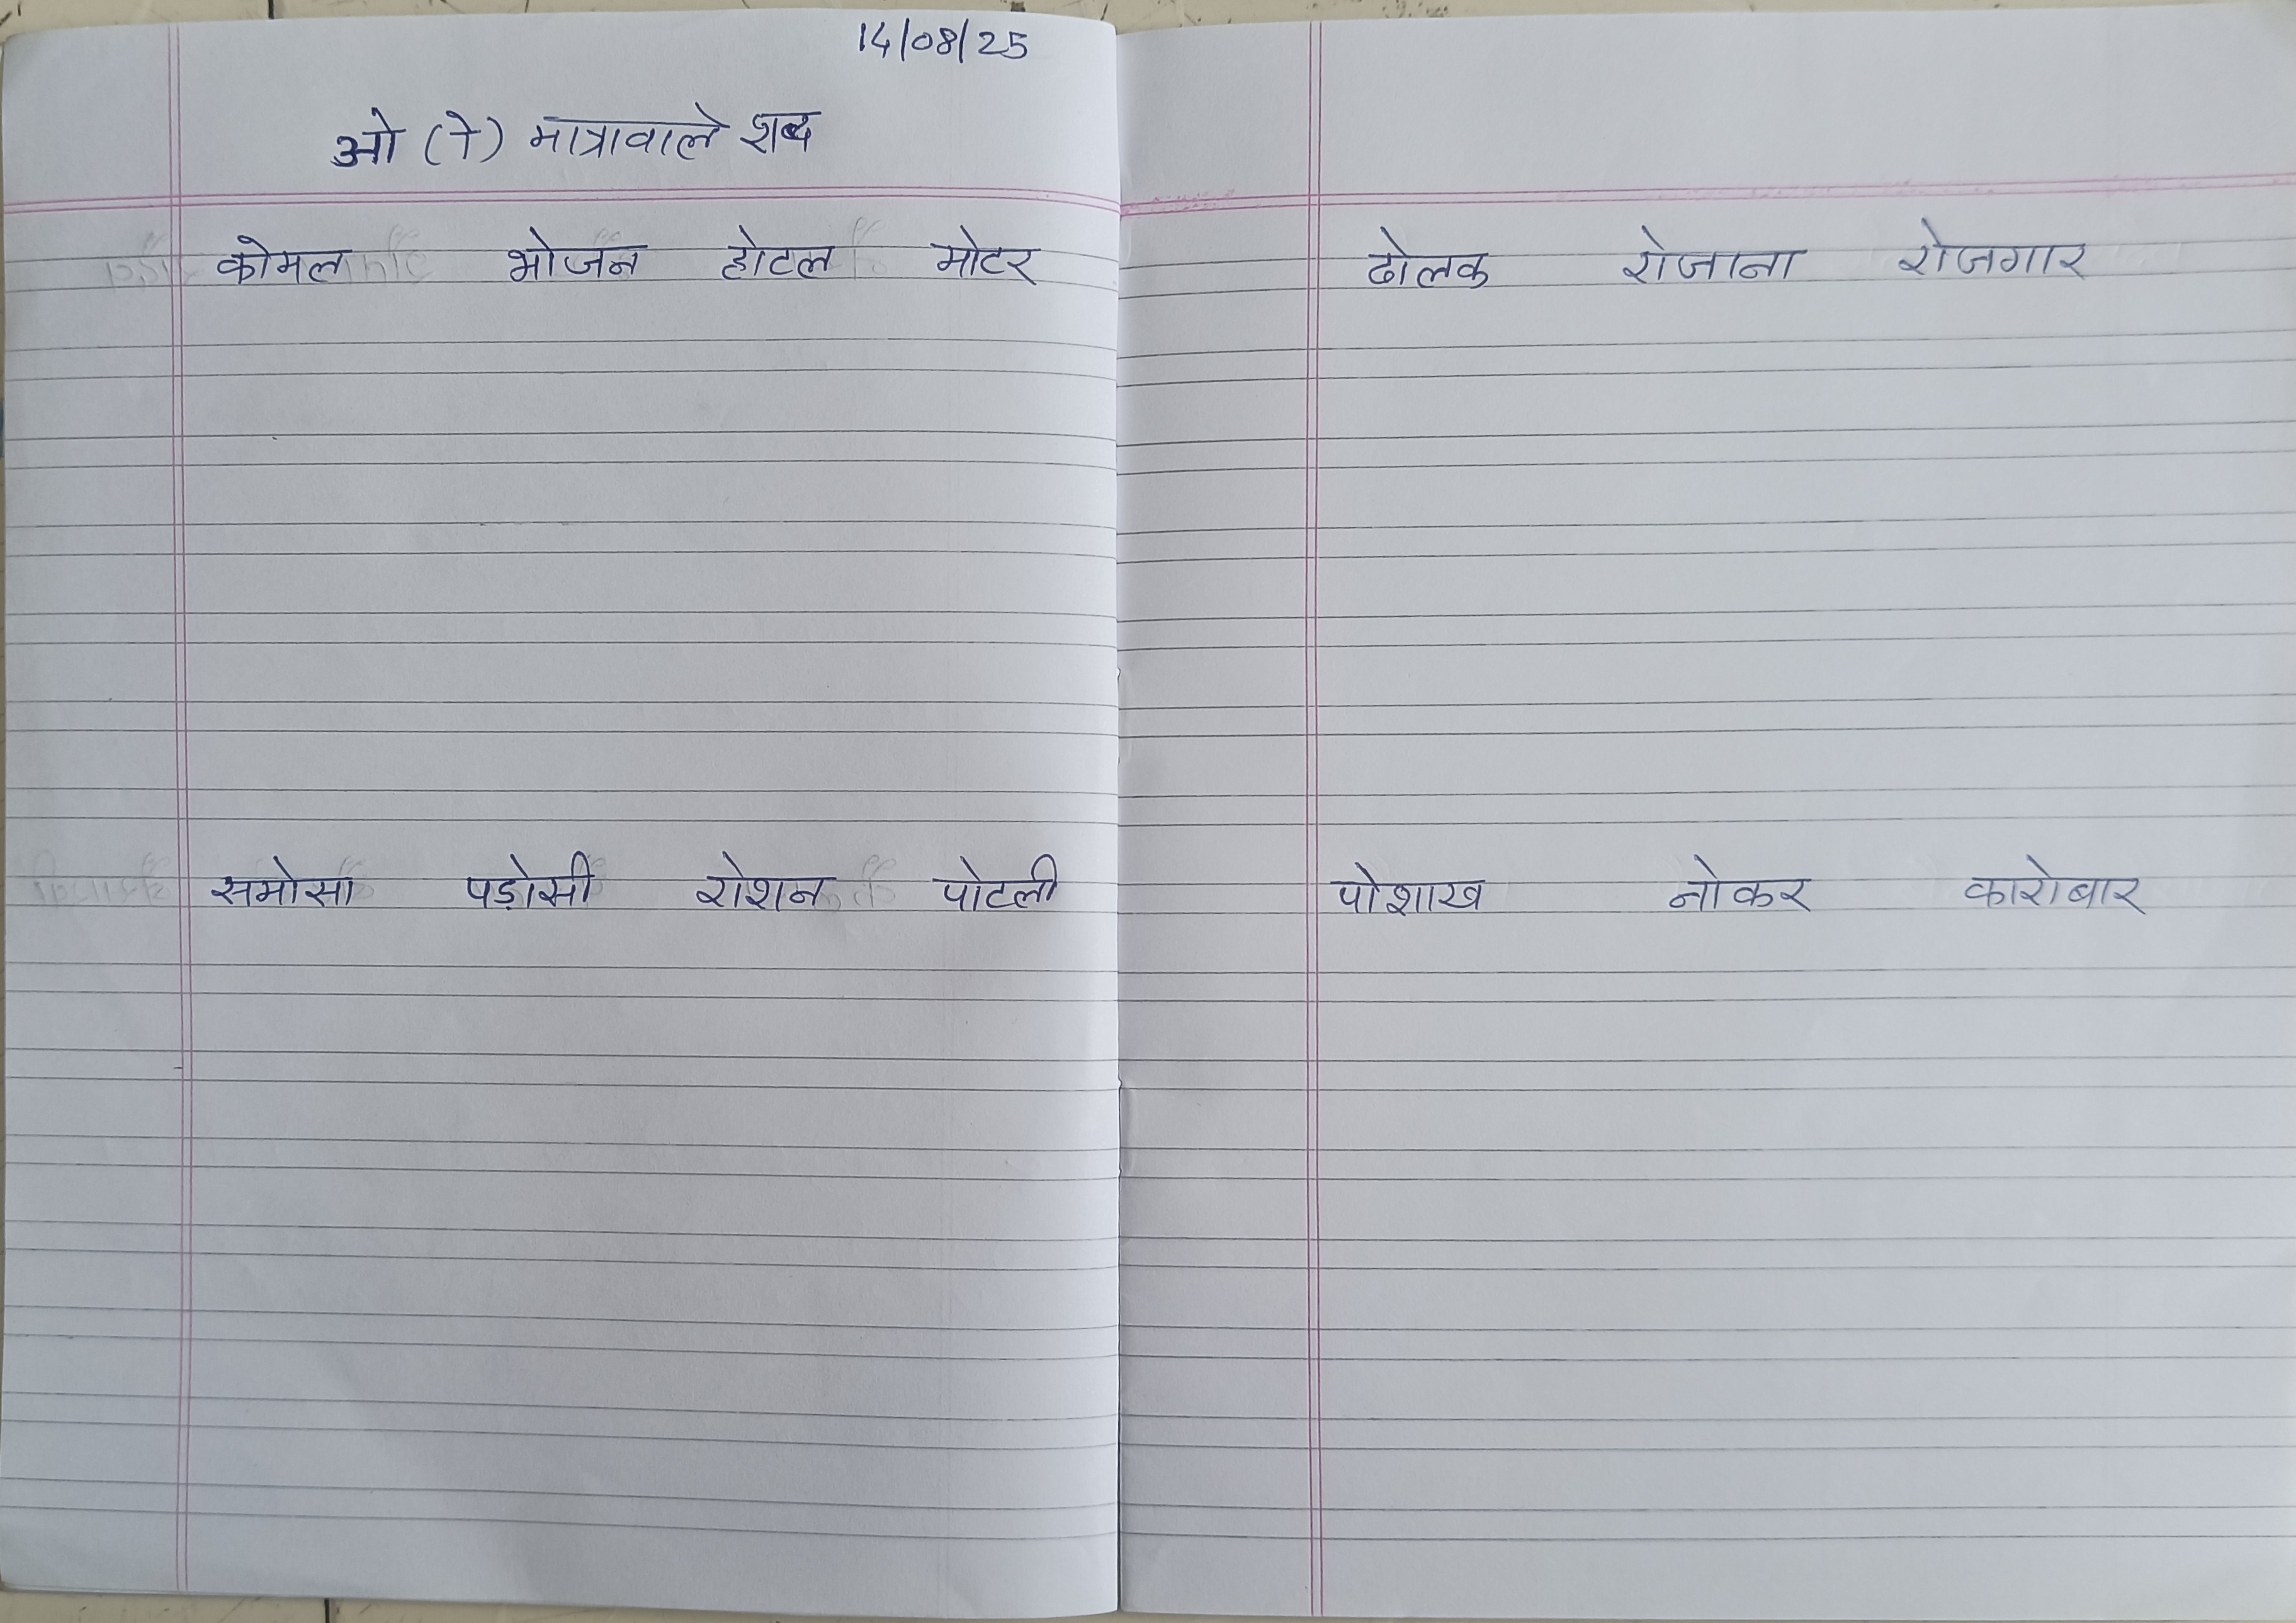 14/08/25
ओ (ो) मात्रावाले शब्द
कोमल भोजन होटल मोटर
समोसा पड़ोसी रोशन पोटली
ढोलक रोजाना रोजगार
पोशाख नोकर कारोबार